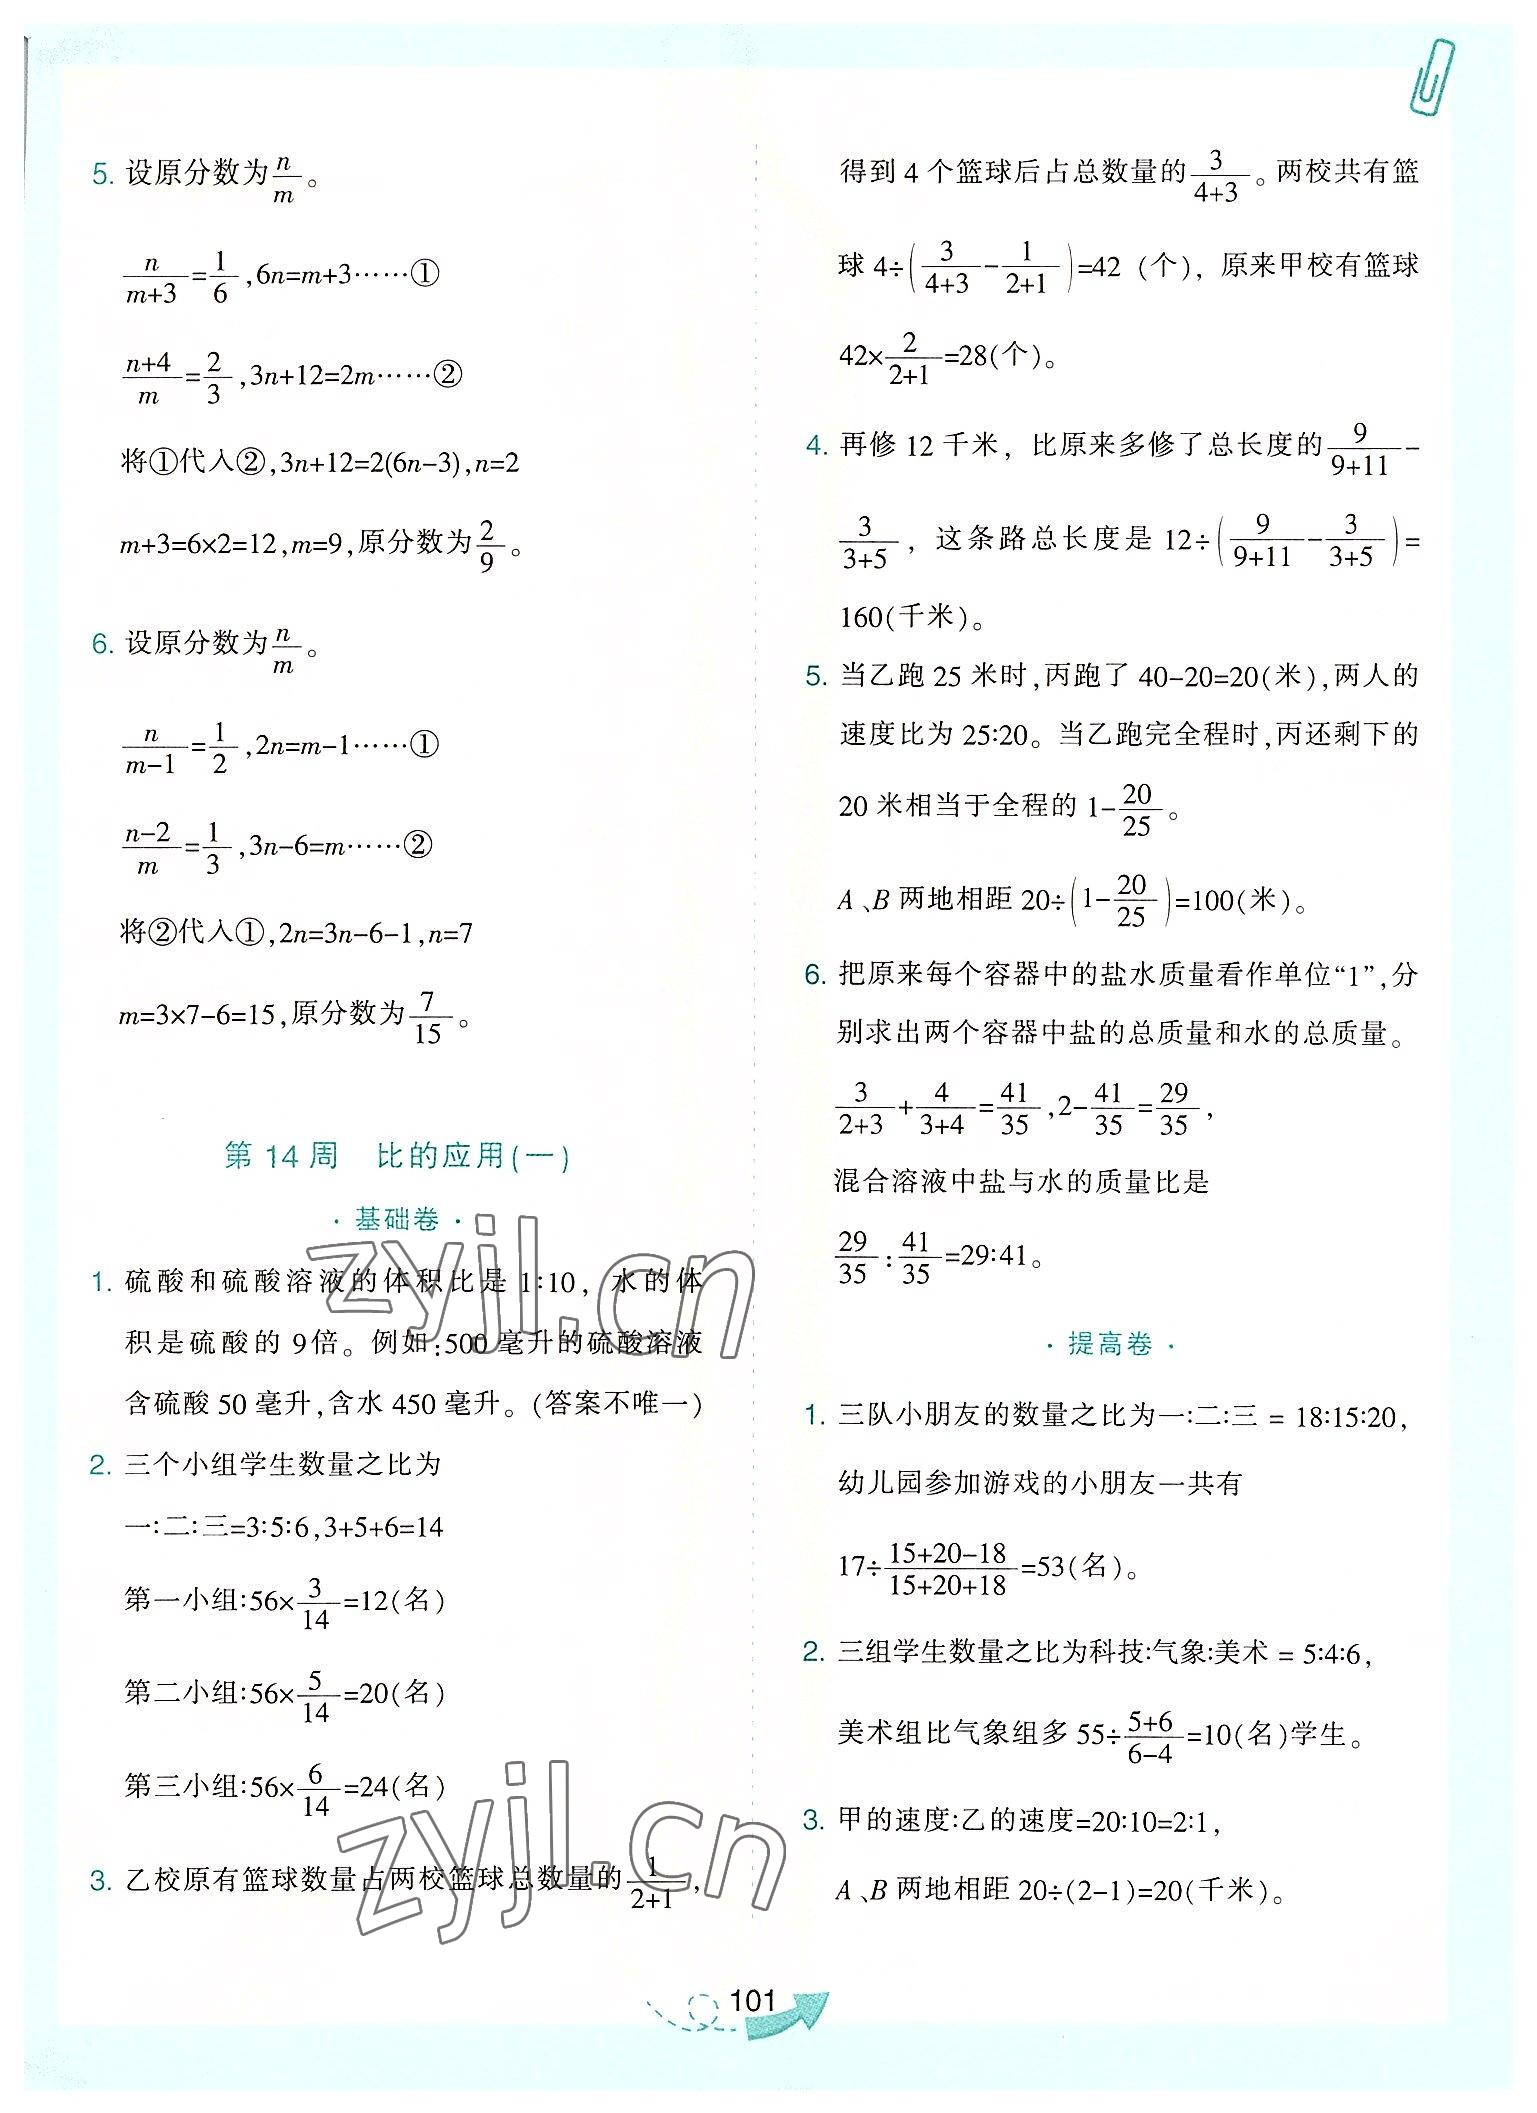 5. 设原分数为n/m。
n/(m+3)=1/6,6n=m+3……①
(n+4)/m=2/3,3n+12=2m……②
将①代入②,3n+12=2(6n-3),n=2
m+3=6×2=12,m=9,原分数为2/9。
6. 设原分数为n/m。
n/(m-1)=1/2,2n=m-1……①
(n-2)/m=1/3,3n-6=m……②
将②代入①,2n=3n-6-1,n=7
m=3×7-6=15,原分数为7/15。
第14周 比的应用(一)
·基础卷·
1. 硫酸和硫酸溶液的体积比是1:10，水的体
积是硫酸的9倍。例如:500毫升的硫酸溶液
含硫酸50毫升,含水450毫升。(答案不唯一)
2. 三个小组学生数量之比为
一:二:三=3:5:6,3+5+6=14
第一小组:56×3/14=12(名)
第二小组:56×5/14=20(名)
第三小组:56×6/14=24(名)
3. 乙校原有篮球数量占两校篮球总数量的1/(2+1),
得到4个篮球后占总数量的3/(4+3)。两校共有篮
球4÷(3/(4+3)-1/(2+1))=42(个)，原来甲校有篮球
42×2/(2+1)=28(个)。
4. 再修12千米，比原来多修了总长度的9/(9+11)-
3/(3+5)，这条路总长度是12÷(9/(9+11)-3/(3+5))=
160(千米)。
5. 当乙跑25米时,丙跑了40-20=20(米),两人的
速度比为25:20。当乙跑完全程时,丙还剩下的
20米相当于全程的1-20/25。
A、B两地相距20÷(1-20/25)=100(米)。
6. 把原来每个容器中的盐水质量看作单位“1”,分
别求出两个容器中盐的总质量和水的总质量。
3/(2+3)+4/(3+4)=41/35,2-41/35=29/35,
混合溶液中盐与水的质量比是
29/35:41/35=29:41。
·提高卷·
1. 三队小朋友的数量之比为一:二:三=18:15:20,
幼儿园参加游戏的小朋友一共有
17÷(15+20-18)/(15+20+18)=53(名)。
2. 三组学生数量之比为科技:气象:美术=5:4:6,
美术组比气象组多55÷(5+6)/(6-4)=10(名)学生。
3. 甲的速度:乙的速度=20:10=2:1,
A、B两地相距20÷(2-1)=20(千米)。
101
zyjl.cn
zyjl.cn